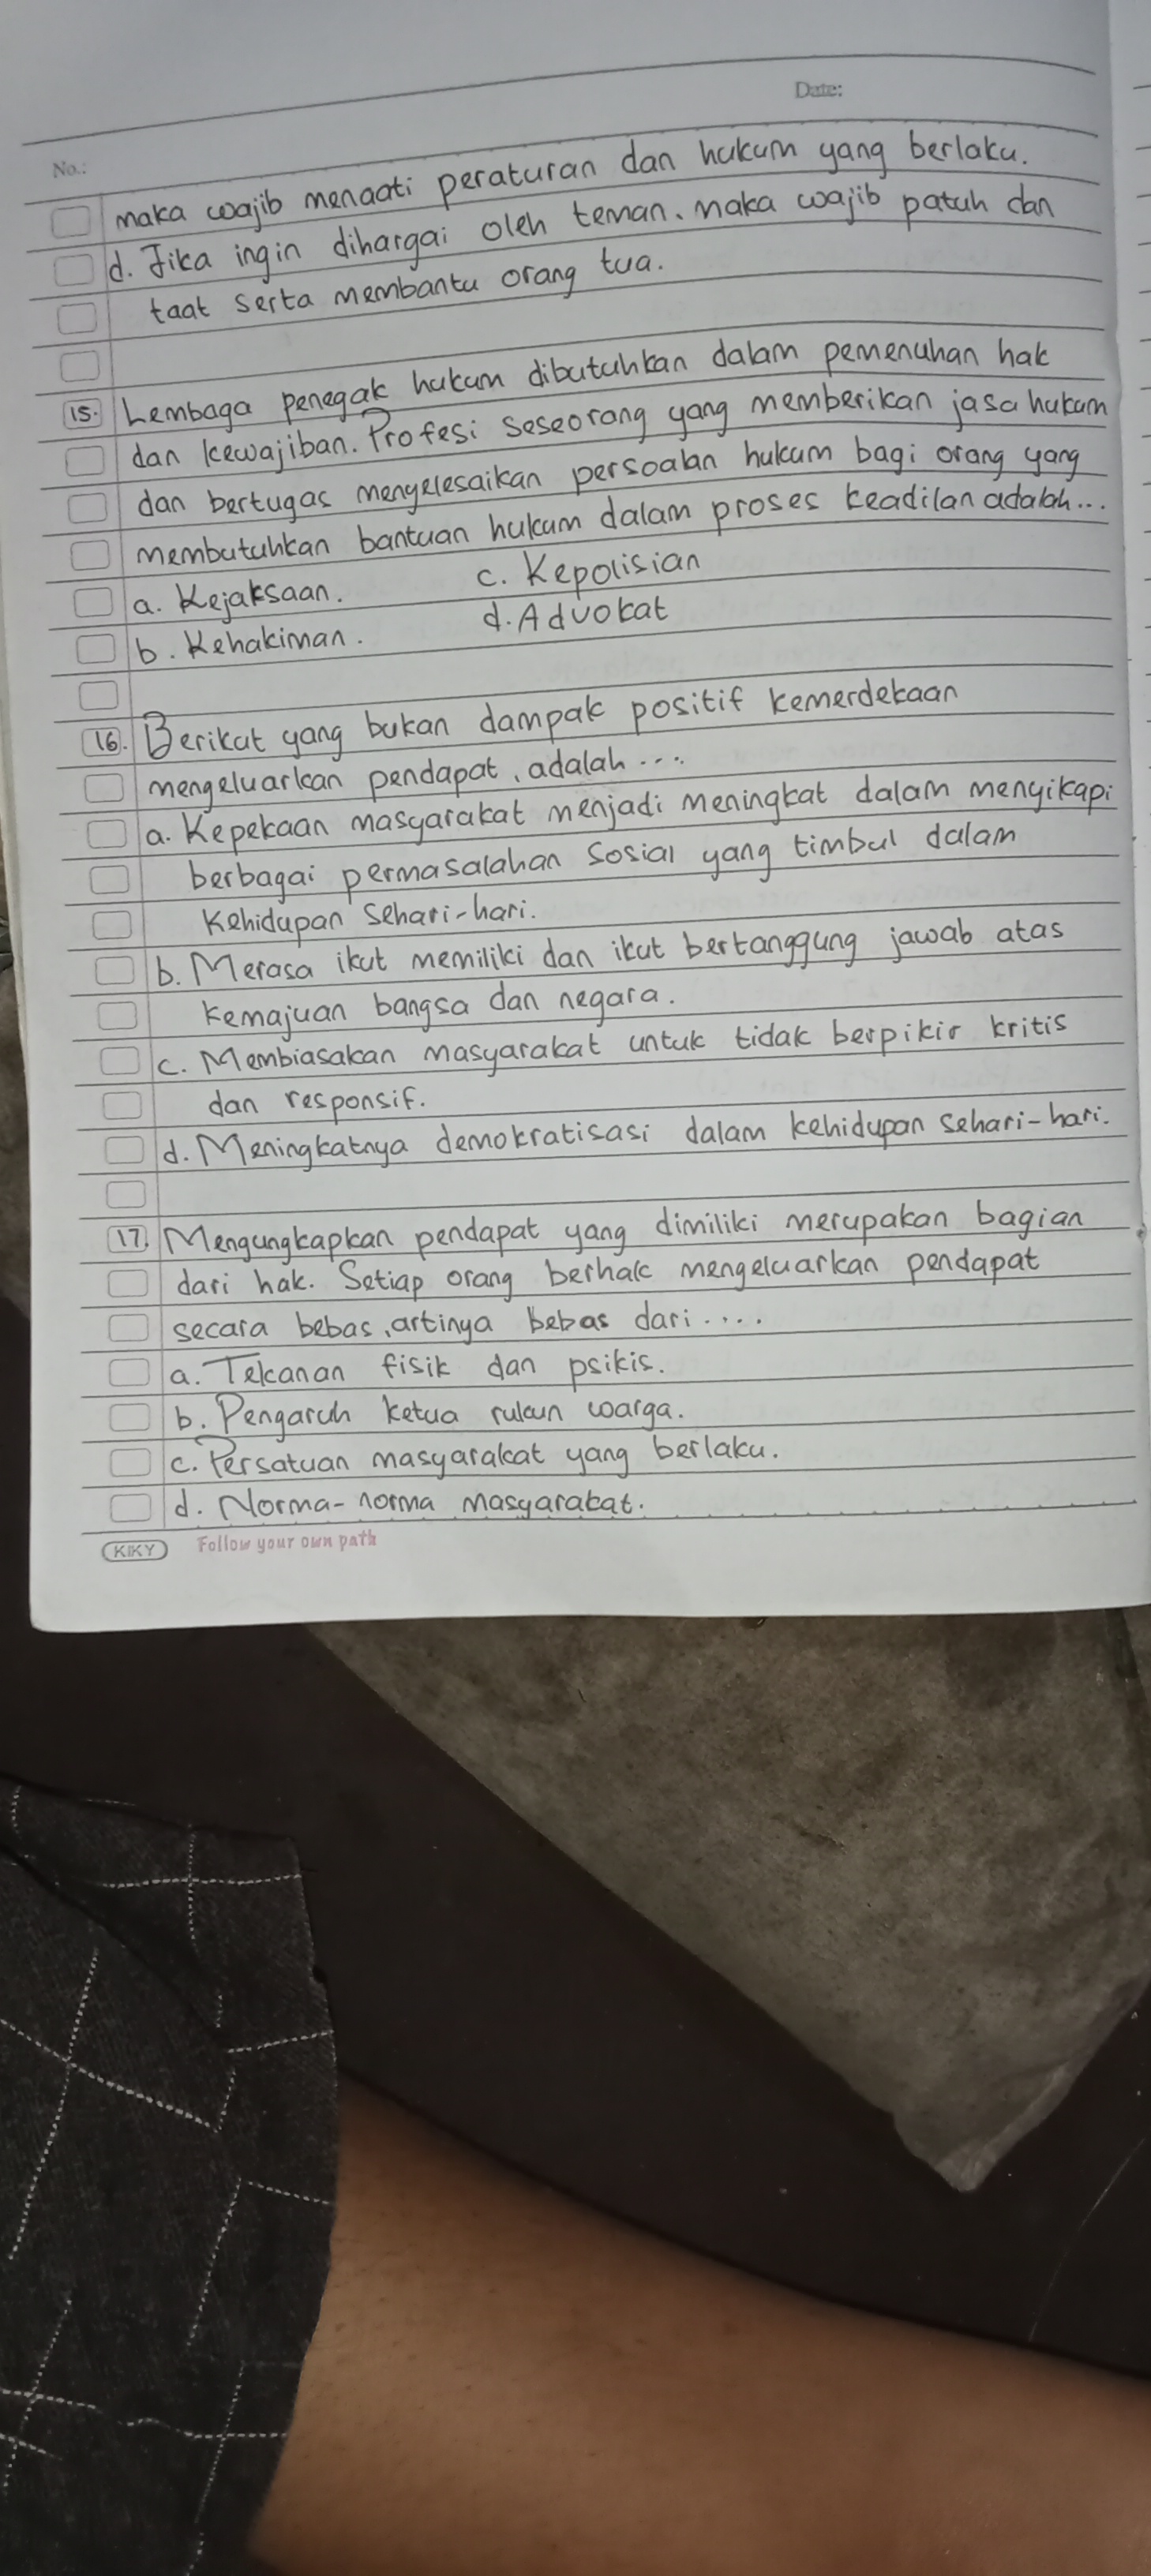 Date:
No.:
maka wajib menaati peraturan dan hukum yang berlaku.
d. Jika ingin dihargai oleh teman, maka wajib patuh dan
taat serta membantu orang tua.
15. Lembaga penegak hukum dibutuhkan dalam pemenuhan hak
dan kewajiban. Profesi seseorang yang memberikan jasa hukum
dan bertugas menyelesaikan persoalan hukum bagi orang yang
membutuhkan bantuan hukum dalam proses keadilan adalah...
a. Kejaksaan. c. Kepolisian
b. Kehakiman. d. Advokat
16. Berikut yang bukan dampak positif kemerdekaan
mengeluarkan pendapat, adalah ....
a. Kepekaan masyarakat menjadi meningkat dalam menyikapi
berbagai permasalahan sosial yang timbul dalam
kehidupan sehari-hari.
b. Merasa ikut memiliki dan ikut bertanggung jawab atas
kemajuan bangsa dan negara.
c. Membiasakan masyarakat untuk tidak berpikir kritis
dan responsif.
d. Meningkatnya demokratisasi dalam kehidupan sehari-hari.
17. Mengungkapkan pendapat yang dimiliki merupakan bagian
dari hak. Setiap orang berhak mengeluarkan pendapat
secara bebas, artinya bebas dari ....
a. Tekanan fisik dan psikis.
b. Pengaruh ketua rukun warga.
c. Persatuan masyarakat yang berlaku.
d. Norma-norma masyarakat.
KIKY Follow your own path